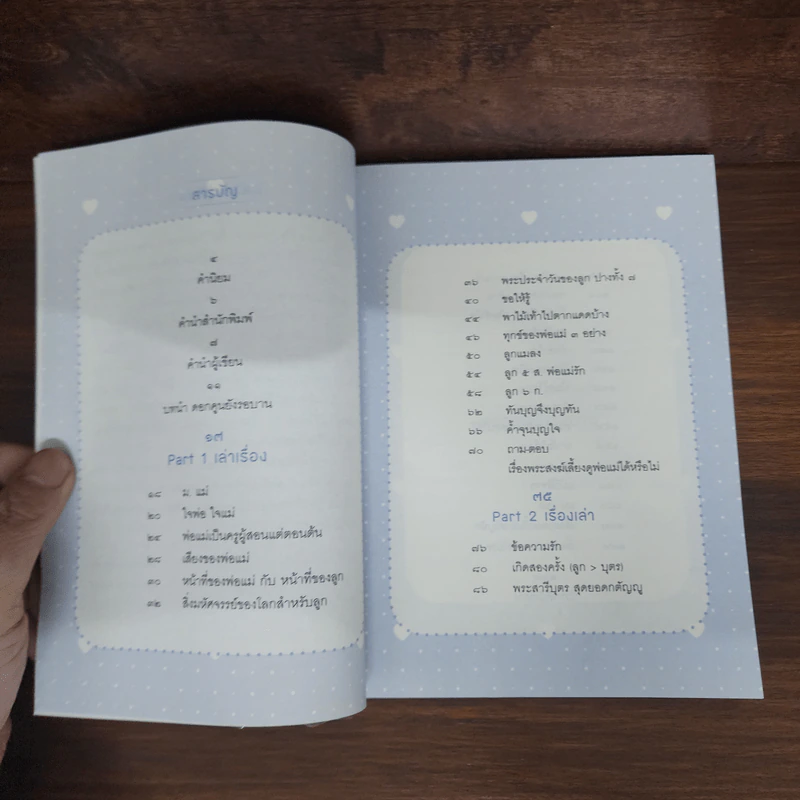 สารบัญ
๕
คำนิยม
๖
คำนำสำนักพิมพ์
๘
คำนำผู้เขียน
๑๑
บทนำ ดอกคูนยังรอบาน
๑๗
Part 1 เล่าเรื่อง
๑๘ ม. แม่
๒๐ ใจพ่อ ใจแม่
๒๔ พ่อแม่เป็นครูผู้สอนแต่ตอนต้น
๒๘ เสียงของพ่อแม่
๓๐ หน้าที่ของพ่อแม่ กับ หน้าที่ของลูก
๓๒ สิ่งมหัศจรรย์ของโลกสำหรับลูก
๓๖ พระประจำวันของลูก ปางทั้ง ๘
๔๐ ขอให้รู้
๔๔ พาไม้เท้าไปตากแดดบ้าง
๔๖ ทุกข์ของพ่อแม่ ๓ อย่าง
๕๐ ลูกแมลง
๕๔ ลูก ๕ ส. พ่อแม่รัก
๕๘ ลูก ๖ ก.
๖๒ ทันบุญจึงบุญทัน
๖๖ ค้ำจุนบุญใจ
๗๐ ถาม-ตอบ
เรื่องพระสงฆ์เลี้ยงดูพ่อแม่ได้หรือไม่
๗๕
Part 2 เรื่องเล่า
๗๖ ข้อความรัก
๘๐ เกิดสองครั้ง (ลูก > บุตร)
๘๖ พระสารีบุตร สุดยอดกตัญญู